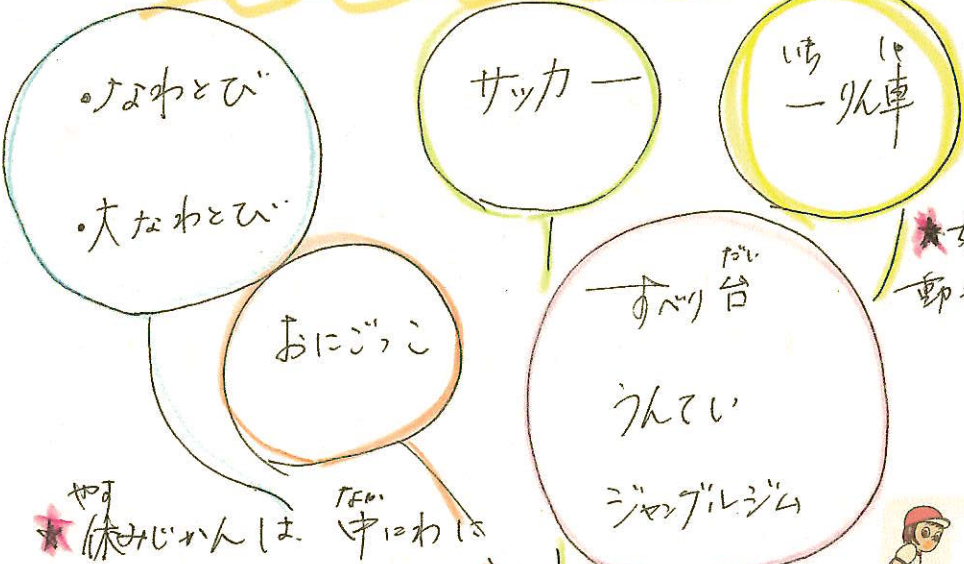 ・なわとび
・大なわとび
サッカー
いち しゃ
一りん車
おにごっこ
だい
すべり台
うんてい
ジャングルジム
やす なか
★休みじかんは、中にわは
★
動